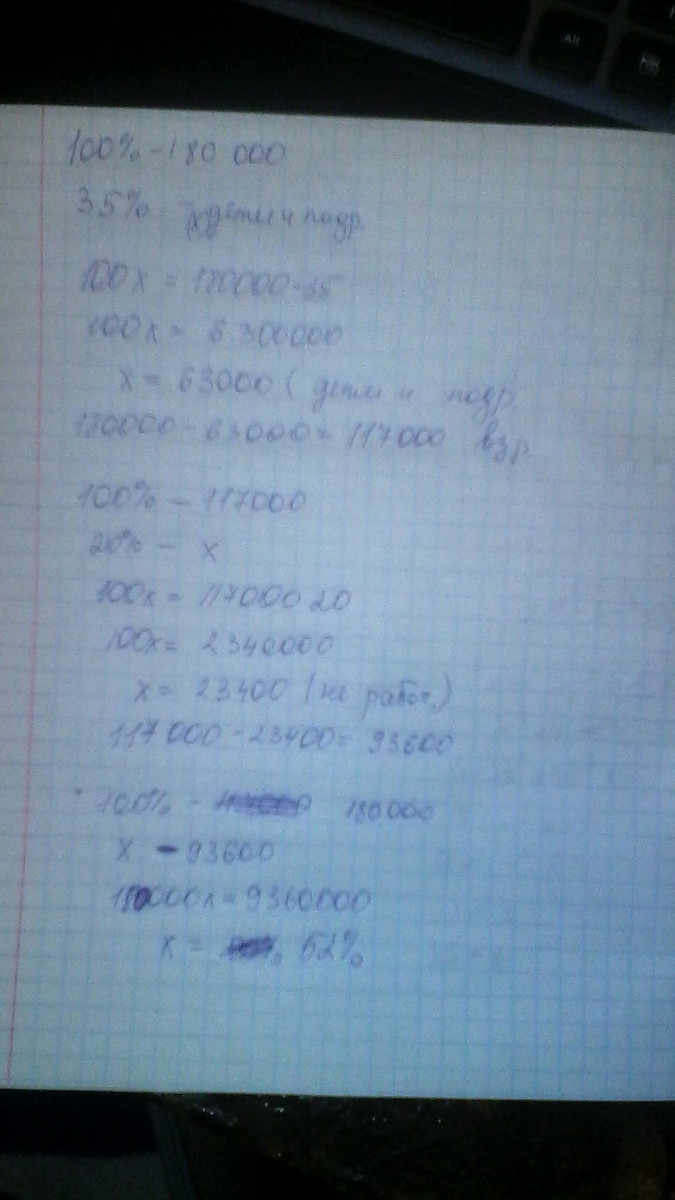 100% - 180 000
35% - x дети и подр.
100x = 180000·35
100x = 6300000
x = 63000 (дети и подр.
180000 - 63000 = 117000 взр.
100% - 117000
20% - x
100x = 117000·20
100x = 2340000
x = 23400 (не работ.)
117000 - 23400 = 93600
100% - 180000
x - 93600
180000x = 9360000
x = 52%
Alt